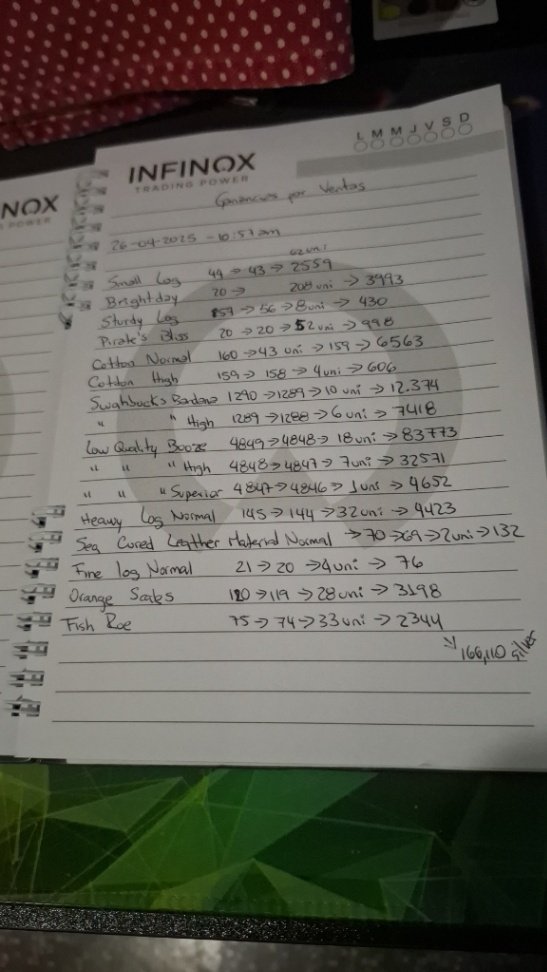 L M M J V S D
NOX
INFINOX
TRADING POWER
Ganancias por Ventas
26-04-2025 - 10:57am
62 uni
Small Log 44 → 43 → 2559
Brightday 20 → 208 uni → 3993
Sturdy Log 57 → 56 → 8uni → 430
Pirate's Bliss 20 → 20 → 52 uni → 998
Cotton Normal 160 → 43 uni → 159 → 6563
Cotton High 159 → 158 → 4uni → 606
1290 → 1289 → 10 uni → 12.374
" " High 1289 → 1288 → 6 uni → 7418
Low Quality Booze 4849 → 4848 → 18 uni → 83773
" " " High 4848 → 4847 → 7uni → 32571
" " " Superior 4847 → 4846 → 1uni → 4652
Heavy Log Normal 145 → 144 → 32 uni → 4423
Sea Cured Leather Material Normal → 70 → 69 → 2uni → 132
Fine log Normal 21 → 20 → 4uni → 76
Orange Scales 120 → 119 → 28 uni → 3198
Fish Roe 75 → 74 → 33 uni → 2344
166,110 silver